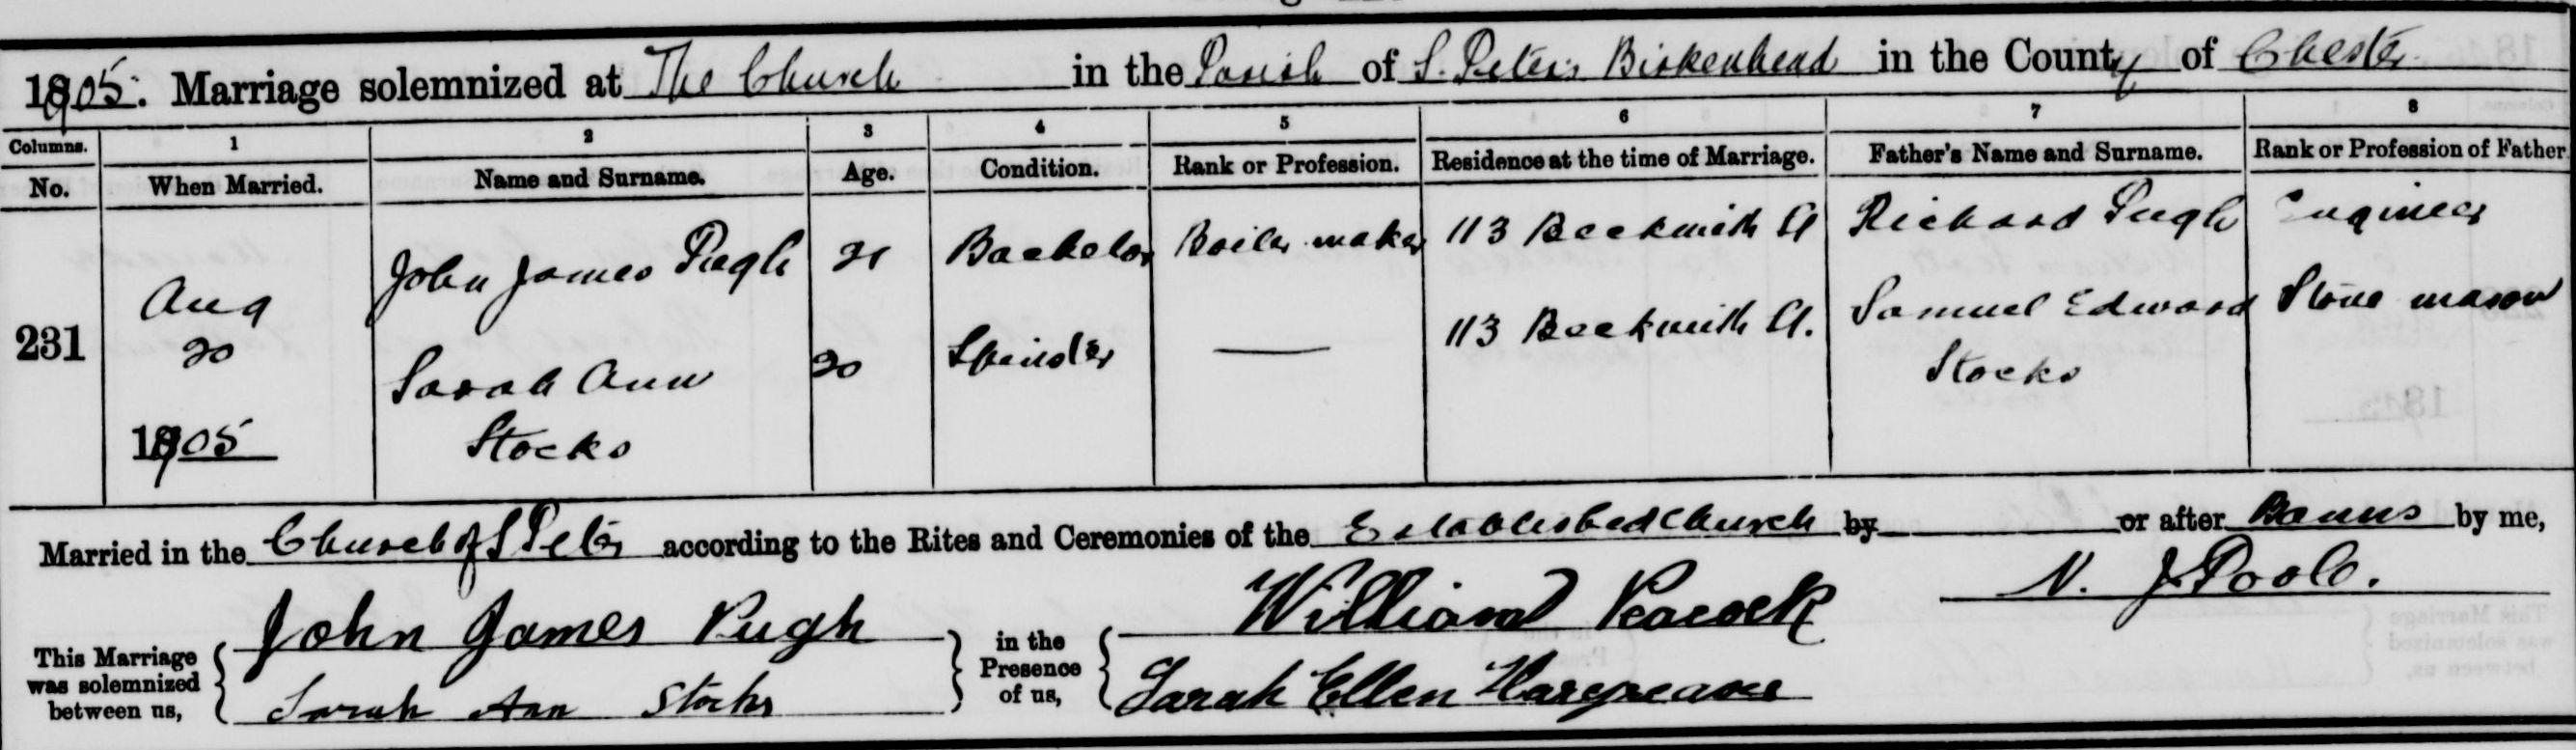 1905. Marriage solemnized at The Church in the Parish of S. Peter's Birkenhead in the County of Chester
Columns. 1 2 3 4 5 6 7 8
No. When Married. Name and Surname. Age. Condition. Rank or Profession. Residence at the time of Marriage. Father's Name and Surname. Rank or Profession of Father.
231 Aug 20 1905
John James Pugh 21 Bachelor Boiler maker 113 Beckwith St Richard Pugh Engineer
Sarah Ann Stocks 20 Spinster — 113 Beckwith St. Samuel Edward Stocks Stone mason
Married in the Church of S Peter according to the Rites and Ceremonies of the Established Church by or after Banns by me,
N. J. Poole.
This Marriage was solemnized between us,
John James Pugh
Sarah Ann Stocks
in the Presence of us,
William Peacock
Sarah Ellen Hargreaves